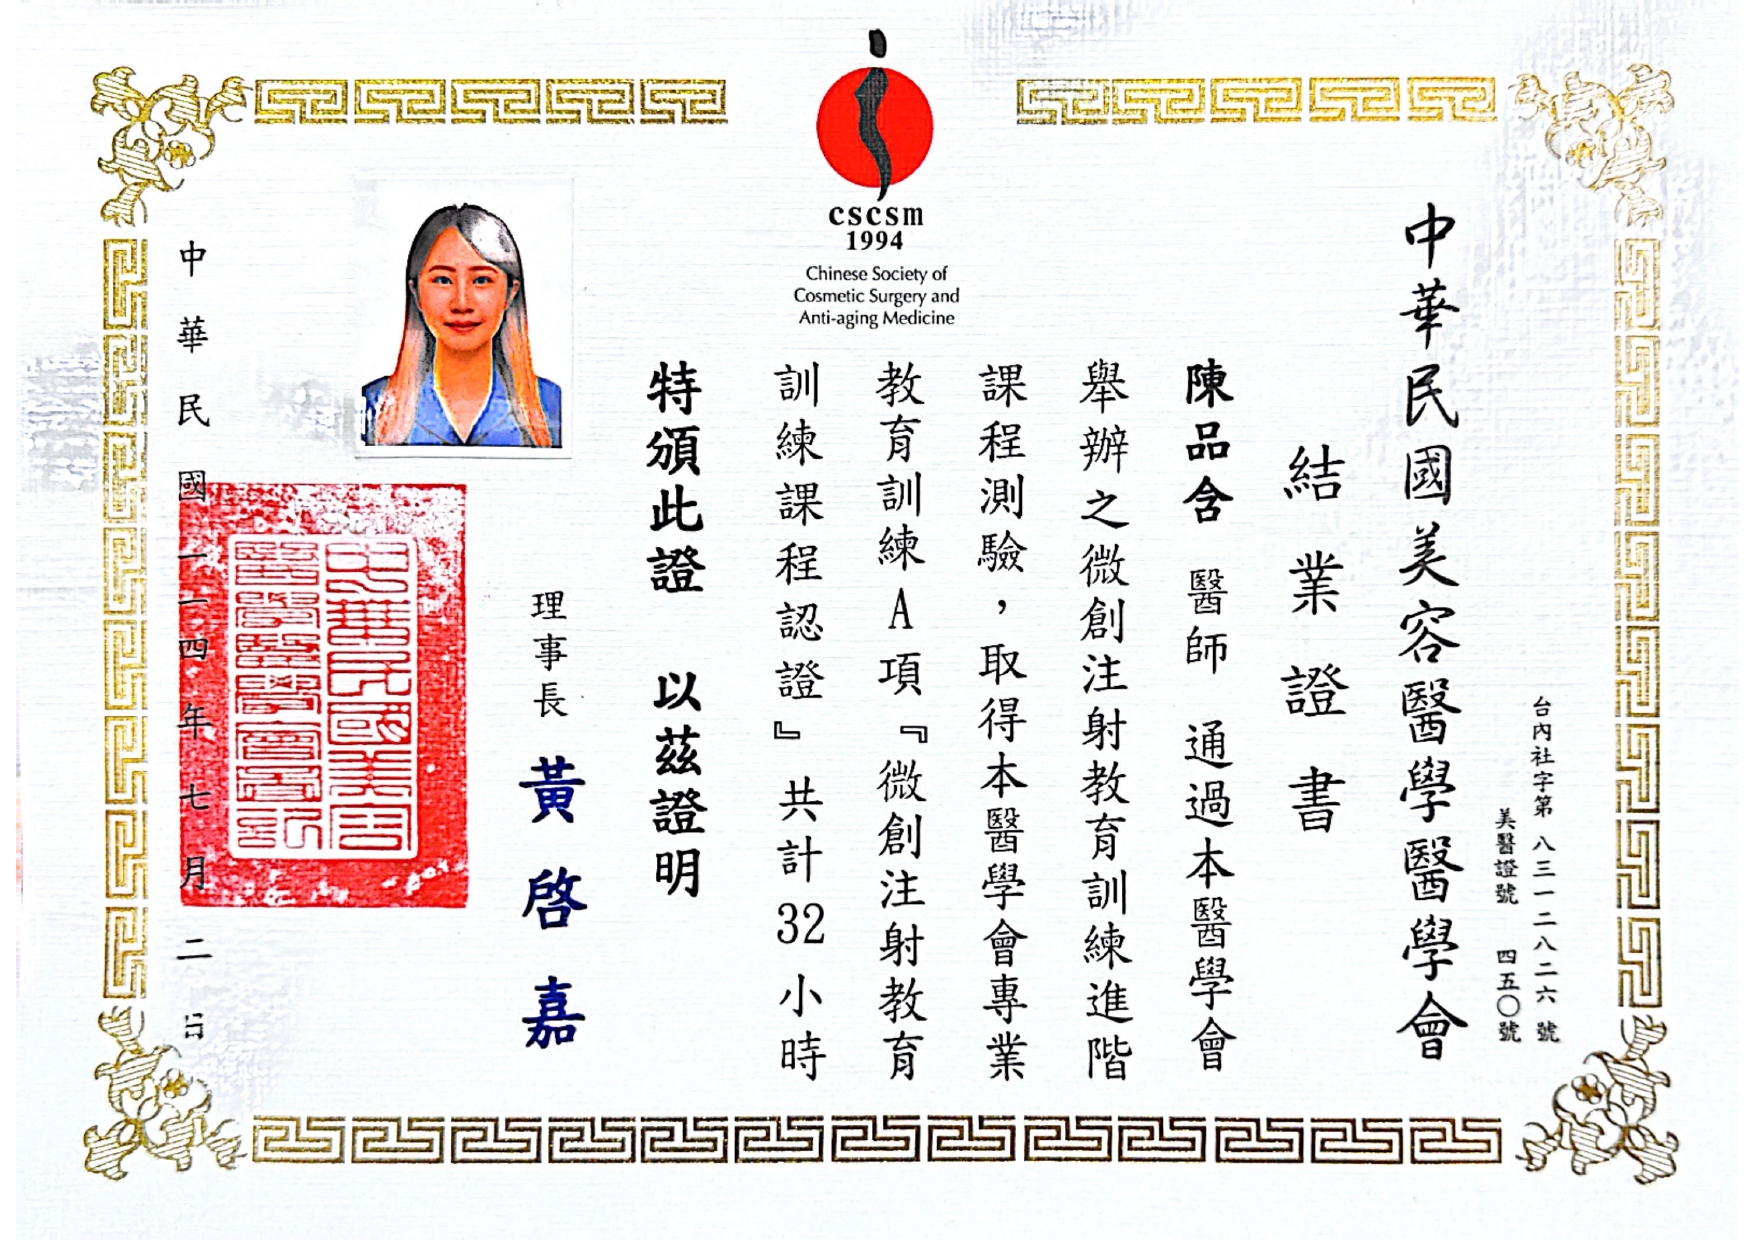 cscsm
1994
Chinese Society of
Cosmetic Surgery and
Anti-aging Medicine
台內社字第 八三一二八二六 號
美醫證號 四五〇號
中華民國美容醫學醫學會
結業證書
陳品含 醫師 通過本醫學會
舉辦之微創注射教育訓練進階
課程測驗，取得本醫學會專業
教育訓練A項『微創注射教育
訓練課程認證』共計32小時
特頒此證 以茲證明
理事長 黃啓嘉
中華民國美容
醫學醫學會圖記
中華民國一一四年七月二日